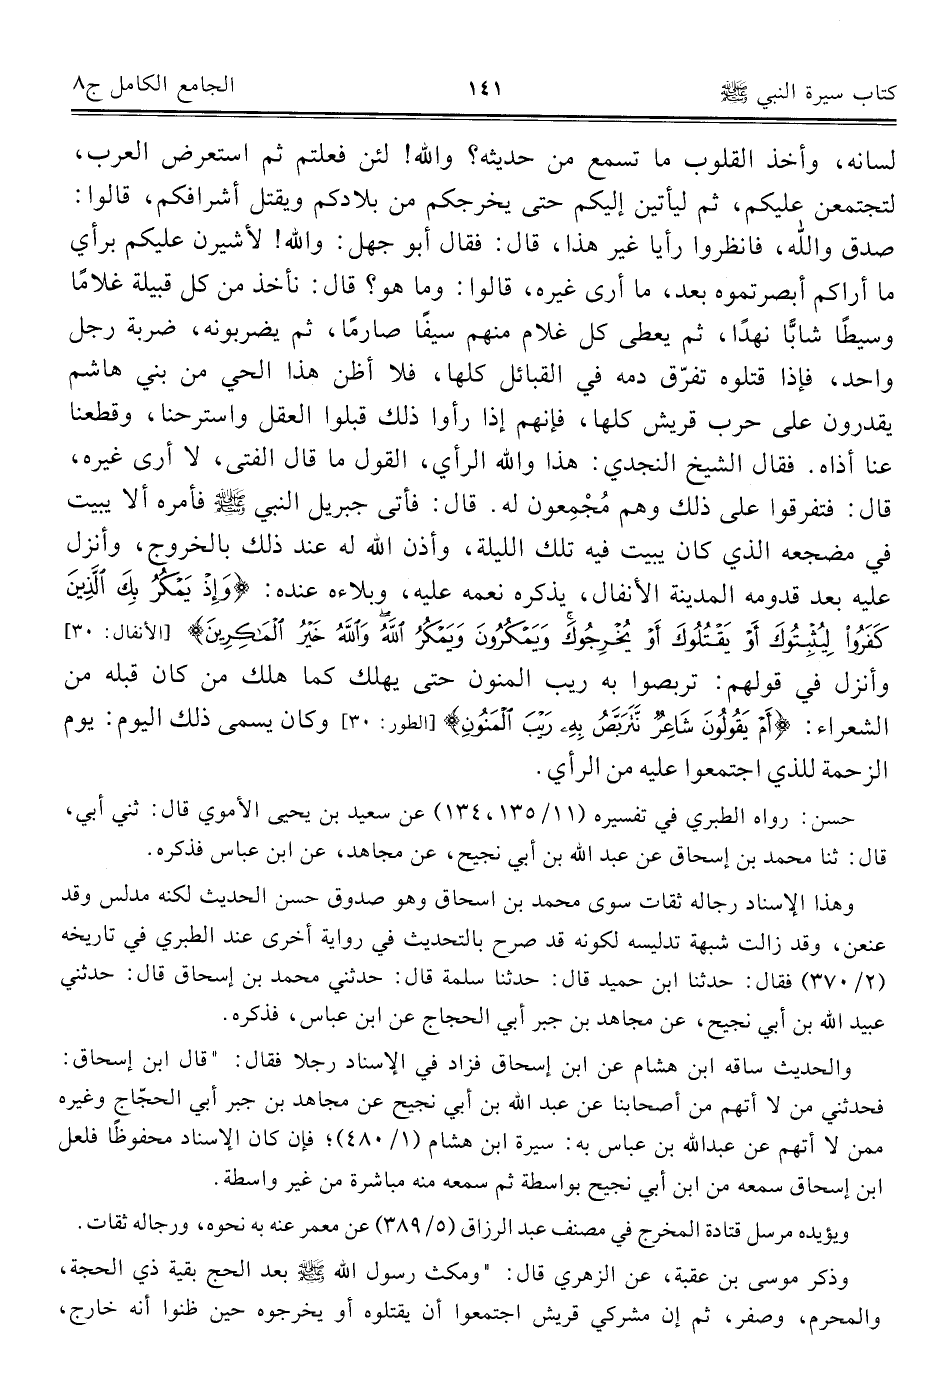 كتاب سيرة النبي ﷺ ١٤١ الجامع الكامل ج٨
لسانه، وأخذ القلوب ما تسمع من حديثه؟ والله! لئن فعلتم ثم استعرض العرب،
لتجتمعن عليكم، ثم ليأتين إليكم حتى يخرجكم من بلادكم ويقتل أشرافكم، قالوا:
صدق والله، فانظروا رأيا غير هذا، قال: فقال أبو جهل: والله! لأشيرن عليكم برأي
ما أراكم أبصرتموه بعد، ما أرى غيره، قالوا: وما هو؟ قال: نأخذ من كل قبيلة غلامًا
وسيطًا شابًّا نهدًا، ثم يعطى كل غلام منهم سيفًا صارمًا، ثم يضربونه، ضربة رجل
واحد، فإذا قتلوه تفرّق دمه في القبائل كلها، فلا أظن هذا الحي من بني هاشم
يقدرون على حرب قريش كلها، فإنهم إذا رأوا ذلك قبلوا العقل واسترحنا، وقطعنا
عنا أذاه. فقال الشيخ النجدي: هذا والله الرأي، القول ما قال الفتى، لا أرى غيره،
قال: فتفرقوا على ذلك وهم مُجْمِعون له. قال: فأتى جبريل النبي ﷺ فأمره ألا يبيت
في مضجعه الذي كان يبيت فيه تلك الليلة، وأذن الله له عند ذلك بالخروج، وأنزل
عليه بعد قدومه المدينة الأنفال، يذكره نعمه عليه، وبلاءه عنده: ﴿وَإِذْ يَمْكُرُ بِكَ ٱلَّذِينَ
كَفَرُوا۟ لِيُثْبِتُوكَ أَوْ يَقْتُلُوكَ أَوْ يُخْرِجُوكَ ۚ وَيَمْكُرُونَ وَيَمْكُرُ ٱللَّهُ ۖ وَٱللَّهُ خَيْرُ ٱلْمَـٰكِرِينَ﴾ [الأنفال: ٣٠]
وأنزل في قولهم: تربصوا به ريب المنون حتى يهلك كما هلك من كان قبله من
الشعراء: ﴿أَمْ يَقُولُونَ شَاعِرٌ نَّتَرَبَّصُ بِهِۦ رَيْبَ ٱلْمَنُونِ﴾ [الطور: ٣٠] وكان يسمى ذلك اليوم: يوم
الزحمة للذي اجتمعوا عليه من الرأي.
حسن: رواه الطبري في تفسيره (١١/ ١٣٤،١٣٥) عن سعيد بن يحيى الأموي قال: ثني أبي،
قال: ثنا محمد بن إسحاق عن عبد الله بن أبي نجيح، عن مجاهد، عن ابن عباس فذكره.
وهذا الإسناد رجاله ثقات سوى محمد بن اسحاق وهو صدوق حسن الحديث لكنه مدلس وقد
عنعن، وقد زالت شبهة تدليسه لكونه قد صرح بالتحديث في رواية أخرى عند الطبري في تاريخه
(٢/ ٣٧٠) فقال: حدثنا ابن حميد قال: حدثنا سلمة قال: حدثني محمد بن إسحاق قال: حدثني
عبيد الله بن أبي نجيح، عن مجاهد بن جبر أبي الحجاج عن ابن عباس، فذكره.
والحديث ساقه ابن هشام عن ابن إسحاق فزاد في الإسناد رجلا فقال: "قال ابن إسحاق:
فحدثني من لا أتهم من أصحابنا عن عبد الله بن أبي نجيح عن مجاهد بن جبر أبي الحجّاج وغيره
ممن لا أتهم عن عبدالله بن عباس به: سيرة ابن هشام (١/ ٤٨٠)؛ فإن كان الإسناد محفوظًا فلعل
ابن إسحاق سمعه من ابن أبي نجيح بواسطة ثم سمعه منه مباشرة من غير واسطة.
ويؤيده مرسل قتادة المخرج في مصنف عبد الرزاق (٥/ ٣٨٩) عن معمر عنه به نحوه، ورجاله ثقات.
وذكر موسى بن عقبة، عن الزهري قال: "ومكث رسول الله ﷺ بعد الحج بقية ذي الحجة،
والمحرم، وصفر، ثم إن مشركي قريش اجتمعوا أن يقتلوه أو يخرجوه حين ظنوا أنه خارج،